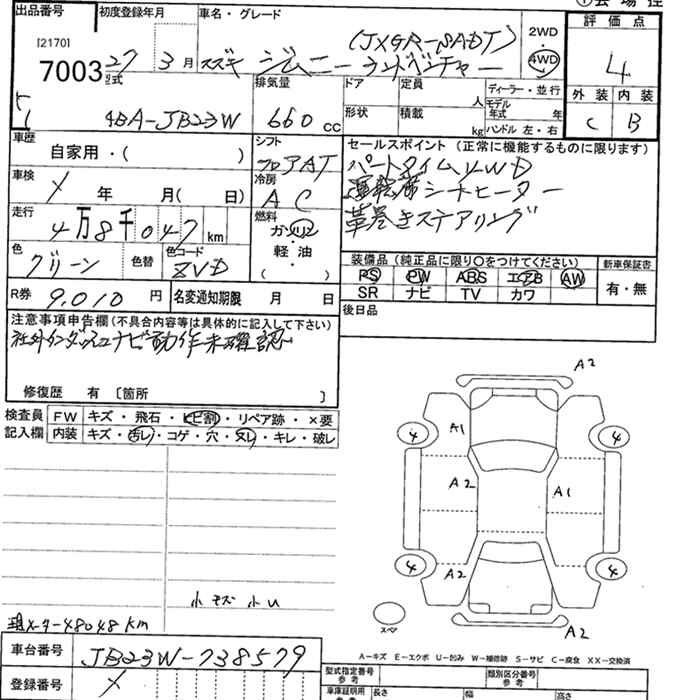 ①会場控
出品番号
初度登録年月
車名・グレード
[2170]
7003
27年 3月
スズキ ジムニー ランドベンチャー
(JXGR-SADT)
2WD
4WD
評価点
4
外装 内装
C B
型式
4BA-JB23W
排気量
660 cc
ドア
定員
人
形状
積載
kg
ディーラー・並行
モデル年式 年
ハンドル 左・右
車歴
自家用・( )
シフト
フロアAT
セールスポイント (正常に機能するものに限ります)
パートタイム4WD
運転席シートヒーター
革巻きステアリング
車検
年 月( 日)
冷房
AC
走行
4万8千047km
燃料
ガソリン
軽・油
( )
色
グリーン
色替
色コード
ZVD
装備品 (純正品に限り○をつけてください)
PS PW ABS エアB AW
SR ナビ TV カワ
新車保証書
有・無
R券 9,010円
名変通知期限 月 日
後日品
注意事項申告欄 (不具合内容等は具体的に記入して下さい)
社外インダッシュナビ動作未確認
修復歴 有 [箇所 ]
検査員記入欄
FW キズ・飛石・ヒビ割・リペア跡・×要
内装 キズ・汚レ・コゲ・穴・スレ・キレ・破レ
A2
A1
4 4
A2 A1
4 A2 4
A2
スペア
小キズ 小U
現メーター48048km
A-キズ E-エクボ U-凹み W-補修跡 S-サビ C-腐食 XX-交換済
車台番号
JB23W-738579
登録番号
型式指定番号 参考
類別区分番号 参考
車庫証明用
長さ 幅 高さ